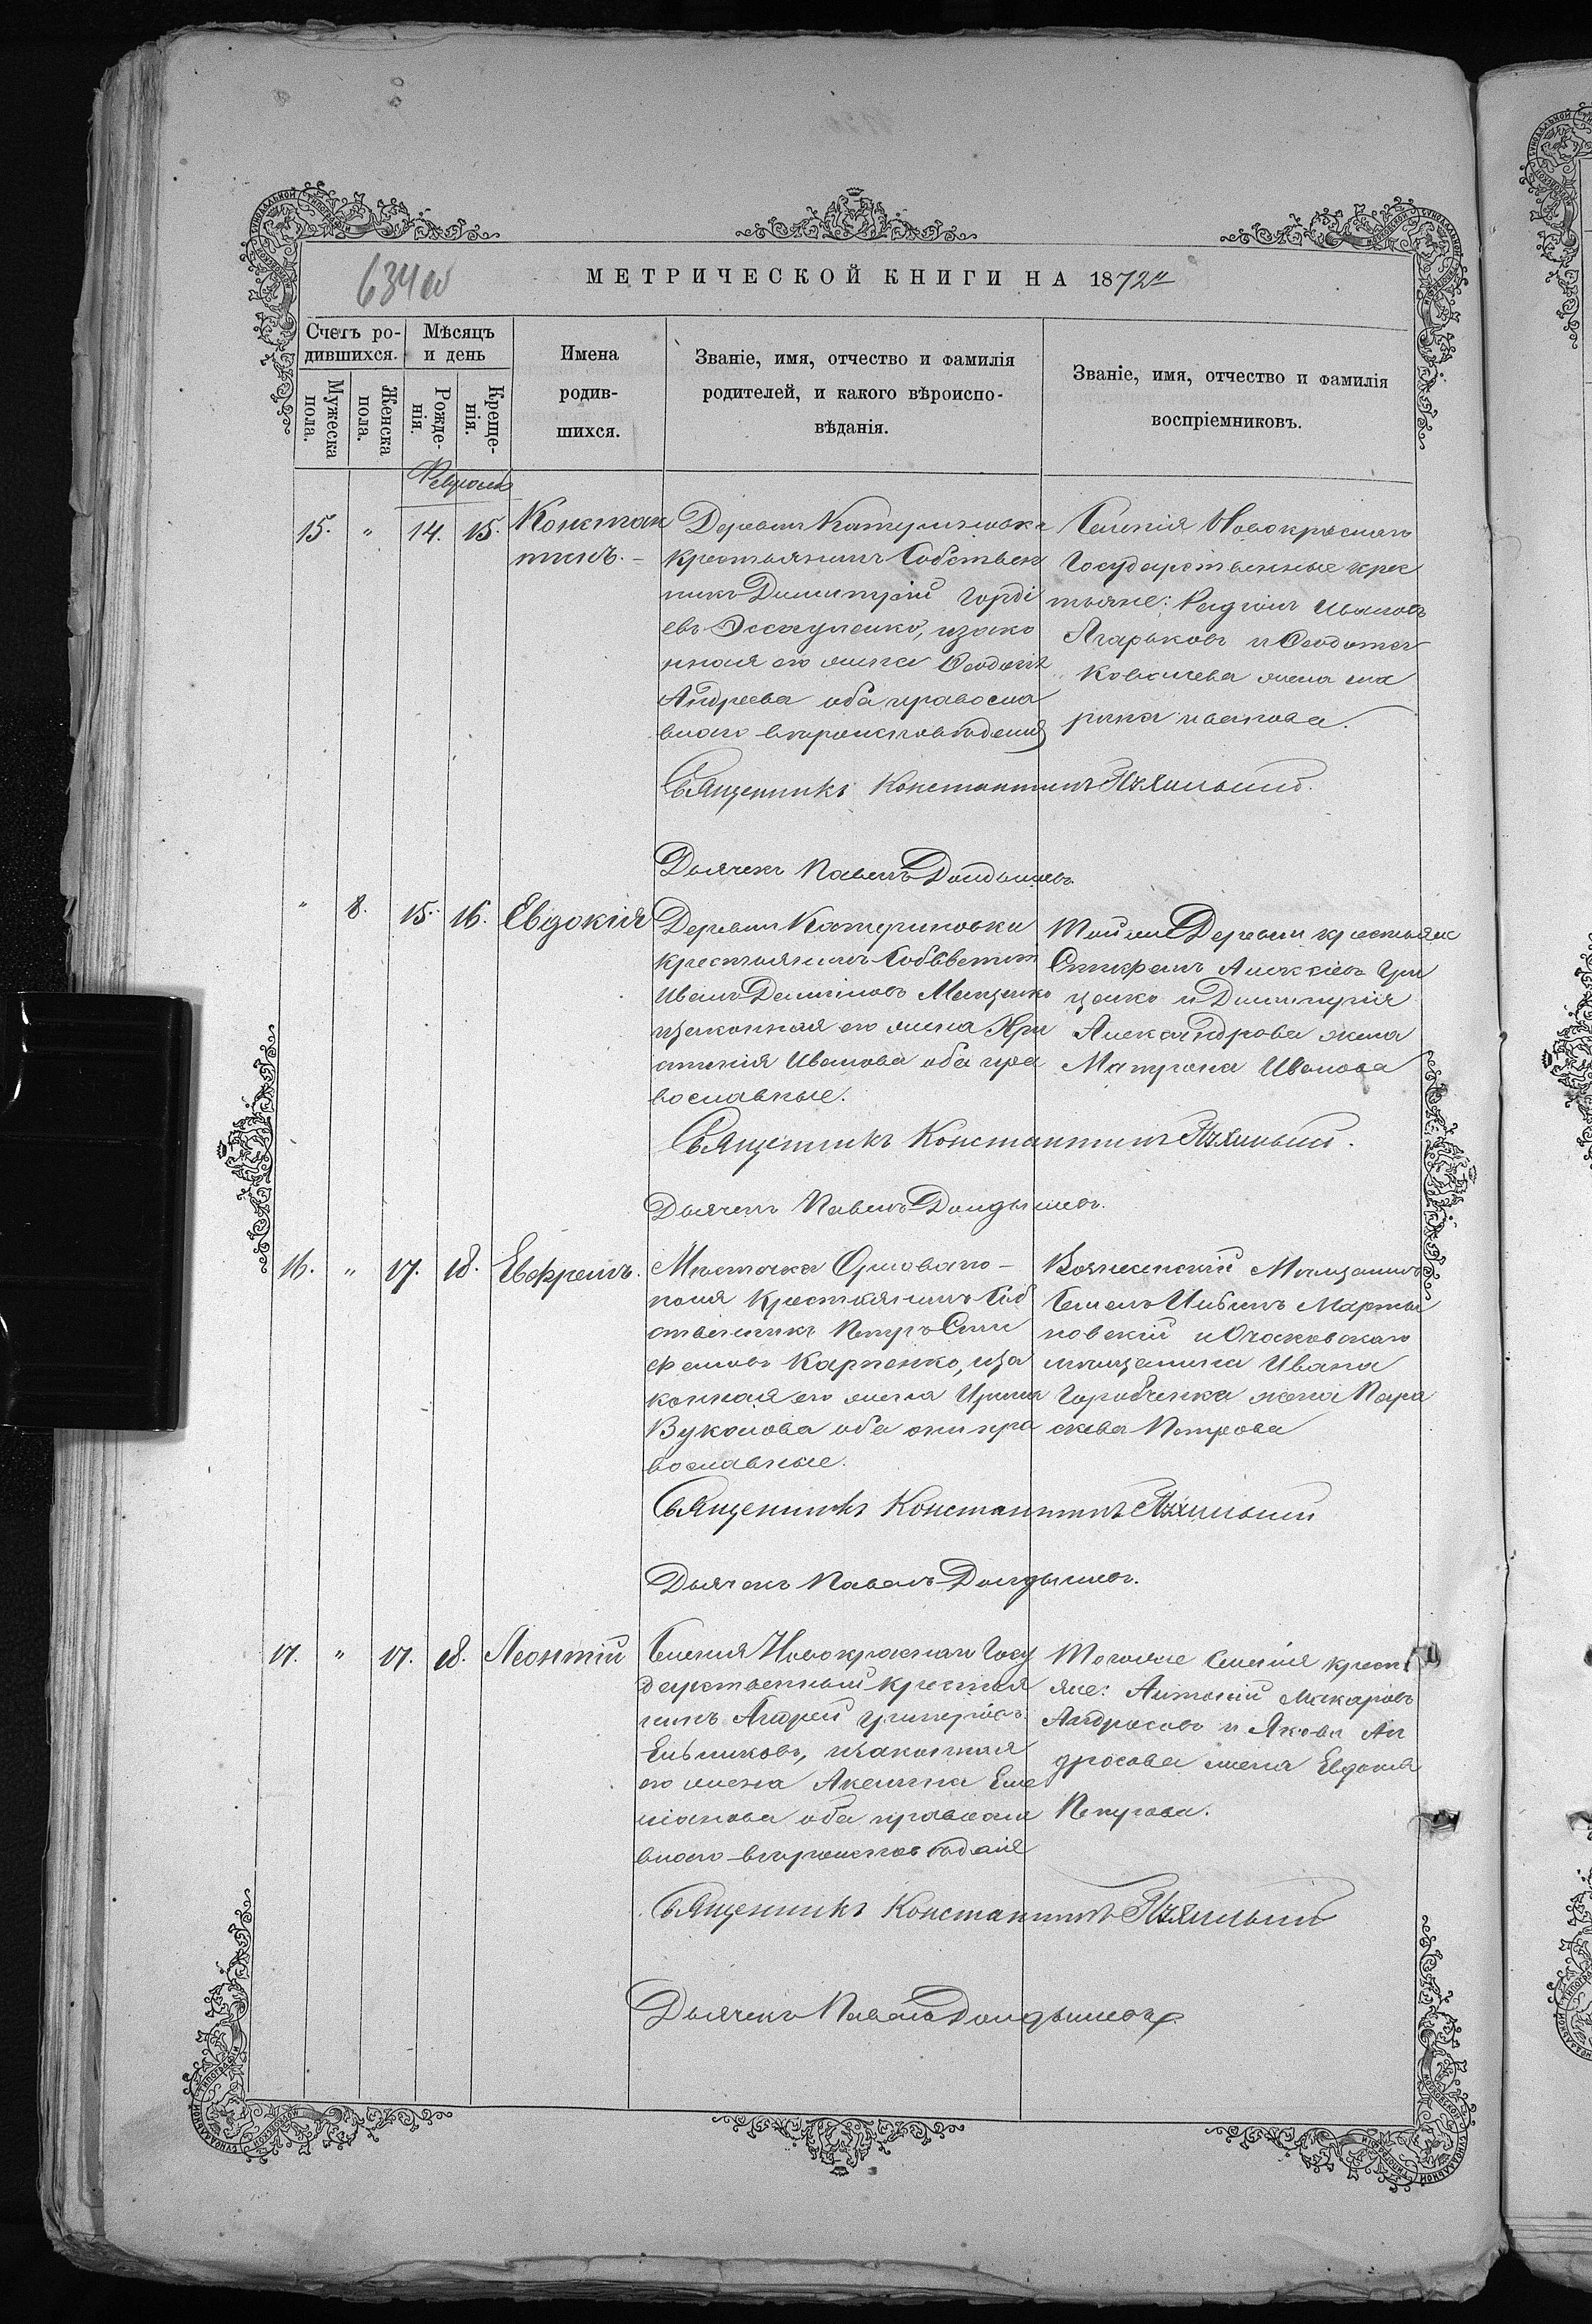 634 об
МЕТРИЧЕСКОЙ КНИГИ НА 1872 г
Счетъ ро-
дившихся.
Мужеска
пола.
Женска
пола.
Мѣсяцъ
и день
Рожде-
нія.
Креще-
нія.
Имена
родив-
шихся.
Званіе, имя, отчество и фамилія
родителей, и какого вѣроиспо-
вѣданія.
Званіе, имя, отчество и фамилія
воспріемниковъ.
Февраль
15. " 14. 15. Констан
тинъ.
Деревни Катериновки
крестьянинъ Собствен
никъ Димитрій Горді
евъ Эссауленко, изако
нная его жена Феодосія
Андреева оба правосла
внаго вѣроисповѣденія
Селенія Новокраснаго
Государственные крес
тьяне: Родіонъ Ивановъ
Агарьковъ и Федота
Ковалева жена Ма
рина иванова.
Священникъ Константинъ
Дьячекъ Павелъ
" 8. 15. 16. Евдокія
Деревни Катериновки
крестьянинъ Собствен
Иванъ Даниловъ Мащенко
изаконная его жена Хри
стинія Иванова оба пра
вославные.
Той же Деревни крестьяне
Стефанъ Алексѣевъ Гри
ценко и Димитрія
Александрова жена
Матрона Иванова
Священникъ Константинъ
Дьячекъ Павелъ
16. " 17. 18. Евфремъ.
Мѣстечка Ольвіопо-
поля Крестьянинъ Соб
ственникъ Петръ Сти
фановъ Карпенко, иза
конная его жена Ирина
Вуколова оба они пра
вославные.
Вознесенскій Мѣщанинъ
Семенъ Марты
новскій и Очаковскаго
мѣщанина Ивана
Горобченка жена Пара
скева Петрова
Священникъ Константинъ
Дьячекъ Павелъ
17. " 17. 18. Леонтій
Селенія Новокраснаго Госу
дарственный крестья
нинъ Андрей Григоріевъ
Ельниковъ, изаконная
его жена Акелина Еме
ліанова оба правосла
внаго вѣроисповѣданія
Тогоже Селенія кресть
яне: Антоній Макаровъ
Андросовъ и Якова Ан
дросова жена Евдокія
Петрова.
Священникъ Константинъ
Дьячекъ Павелъ